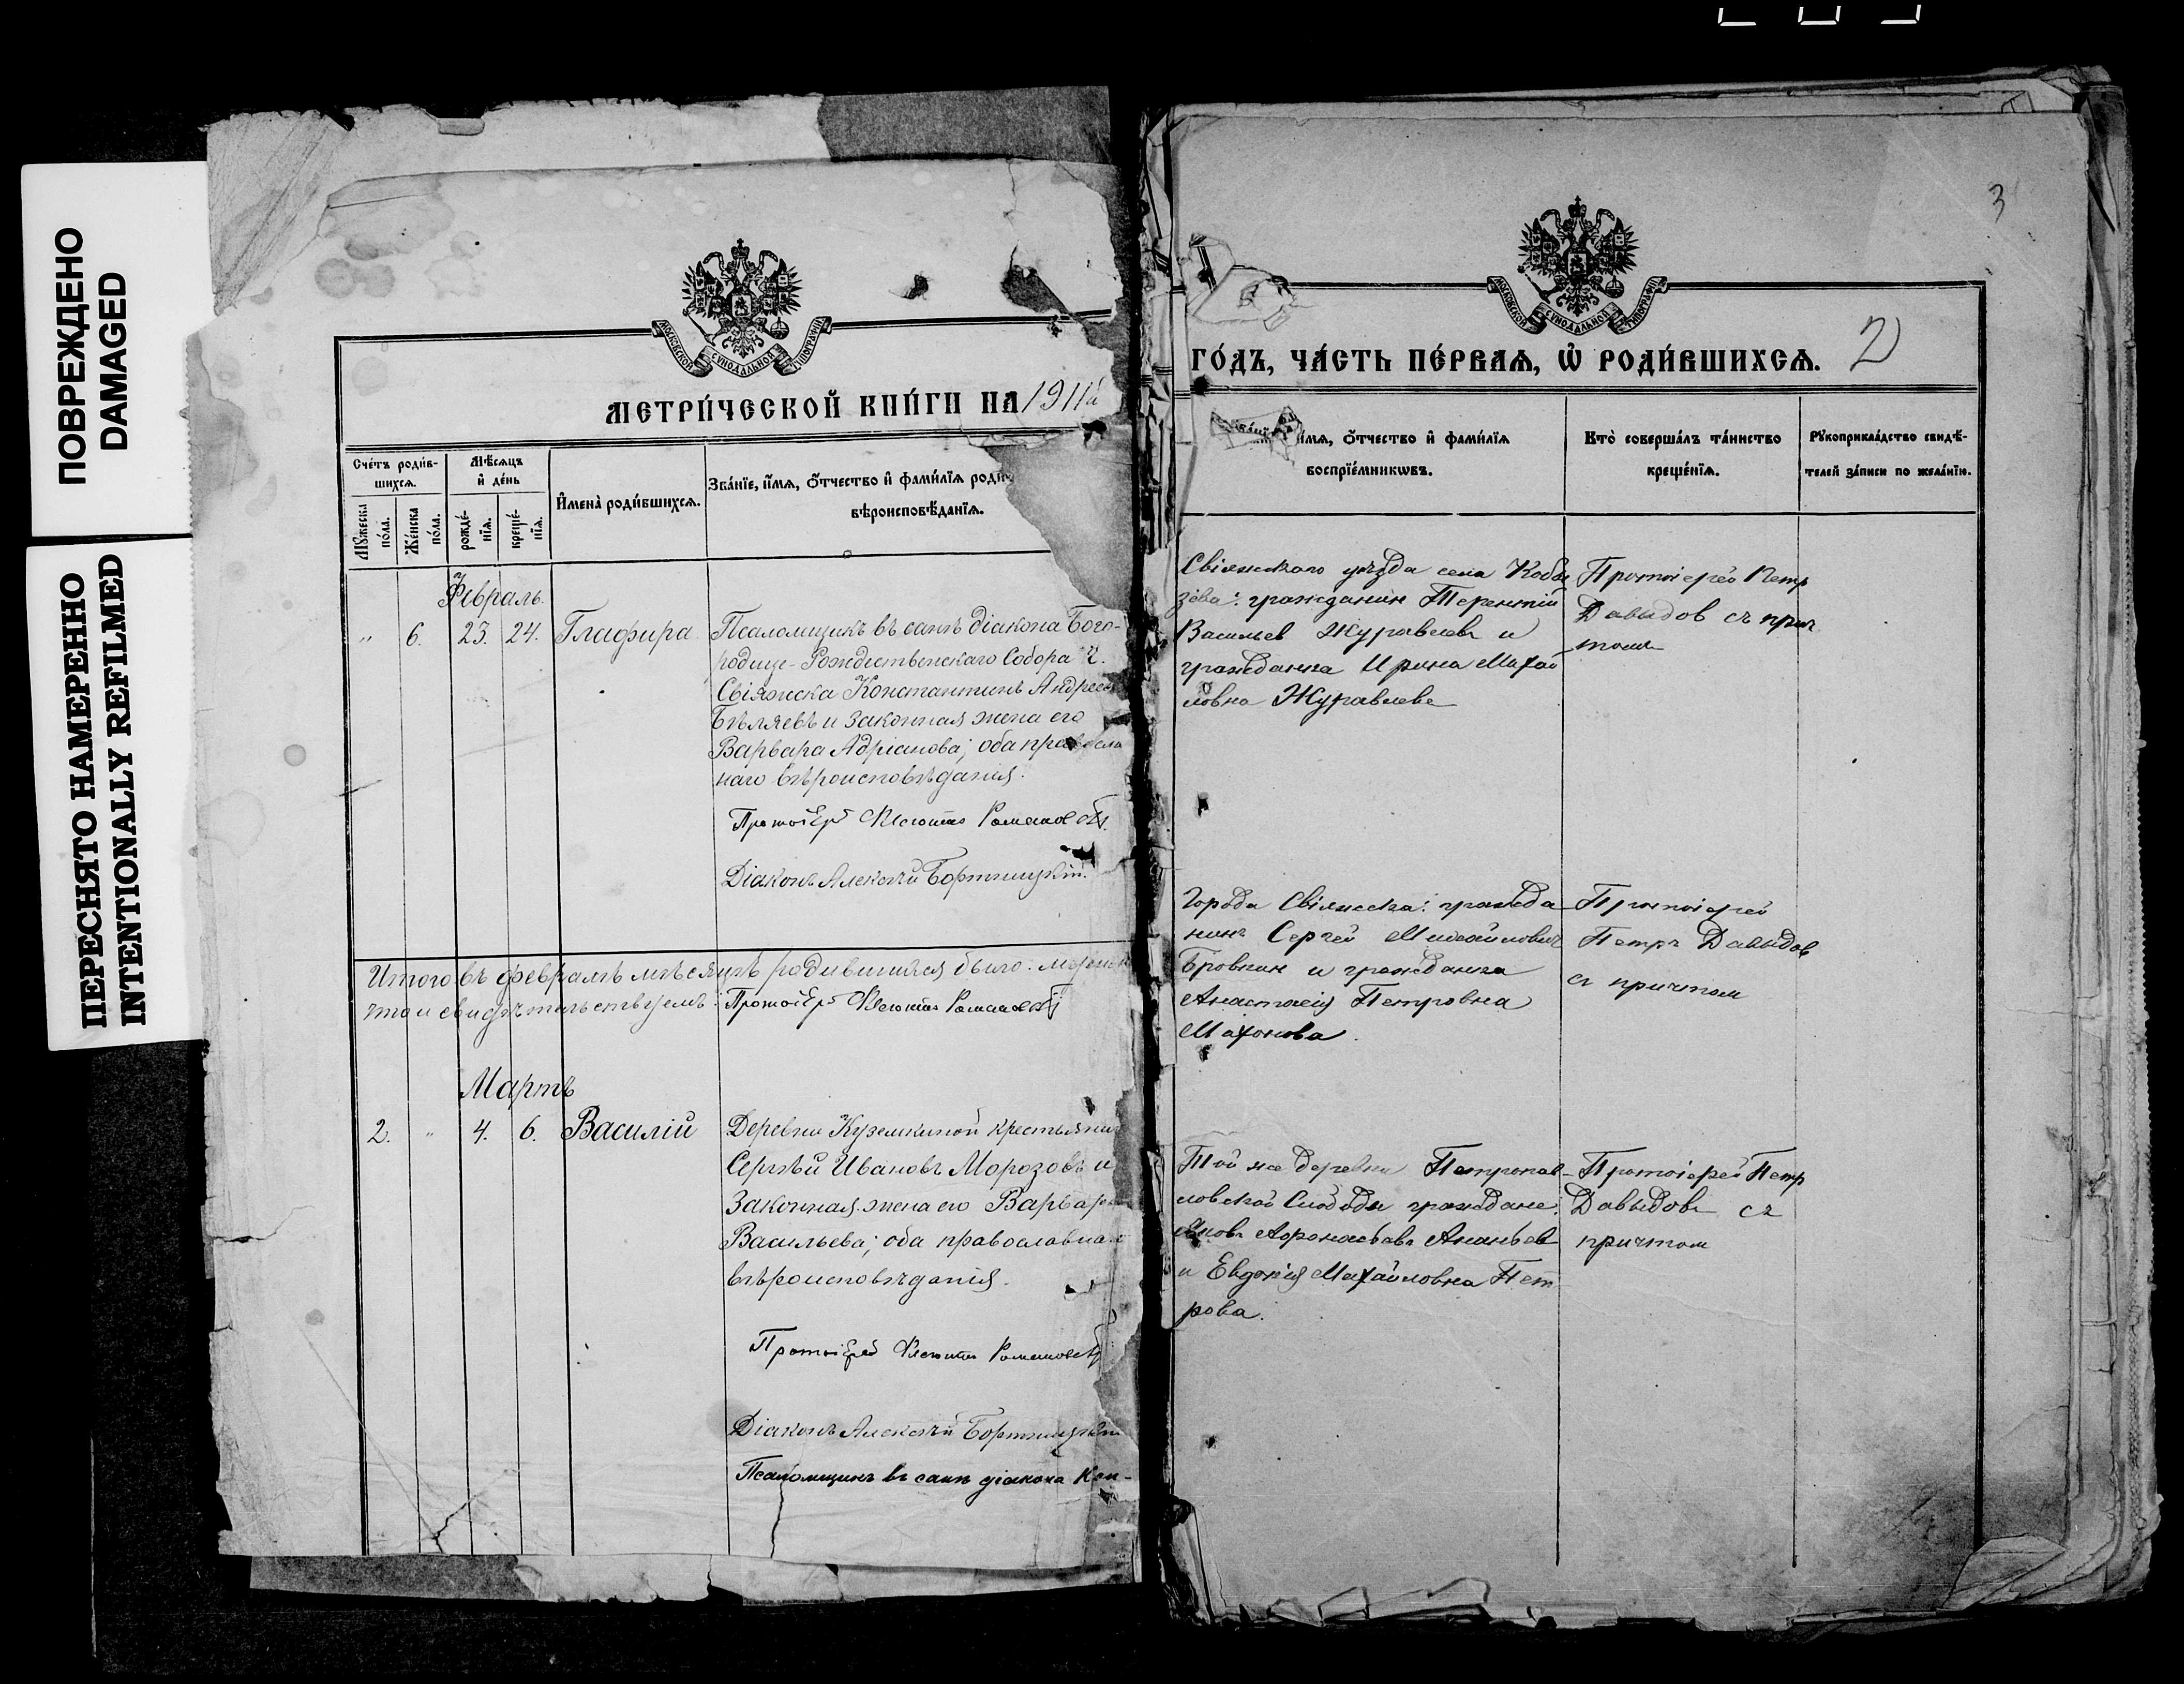 ПОВРЕЖДЕНО
DAMAGED
ПЕРЕСНЯТО НАМЕРЕННО
INTENTIONALLY REFILMED
МОСКОВСКОЙ СУНОДАЛЬНОЙ ТИПОГРАФІИ
МЕТРИ́ЧЕСКОЙ КНИ́ГИ НА 1911й
Сче́тъ роди́в-
шихсѧ.
Мѣ́сѧцъ
и҆ де́нь
Мꙋ́жеска
по́ла.
Же́нска
по́ла.
рожде́-
нїѧ.
креще́-
нїѧ.
И҆мена̀ роди́вшихсѧ.
Зва́нїе, и҆́мѧ, ѻ҆́тчество и҆ фами́лїѧ роди
вѣроисповѣ́данїѧ.
Февраль.
" 6. 23. 24. Глафира
Псаломщикъ въ санѣ діакона Бого-
родице-Рождественскаго Собора г.
Свіяжска Константинъ Андреев
Бѣляевъ и законная жена его
Варвара Адріанова; оба правосла
наго вѣроисповѣданія.
Протоіерей
Діаконъ Алексѣй Бортницкій.
Итого въ февралѣ мѣсяцѣ родившихся было: мужеск
что и свидѣтельствуемъ: Протоіерей
Мартъ
2. " 4. 6. Василій
Деревни Куземкиной крестьянин
Сергѣй Ивановъ Морозовъ и
законная жена его Варвара
Васильева; оба православнаго
вѣроисповѣданія.
Протоіерей
Діаконъ Алексѣй Бортницкій
Псаломщикъ въ санѣ діакона Кон-
3
МОСКОВСКОЙ СУНОДАЛЬНОЙ ТИПОГРАФІИ
ГО́ДЪ, ЧА́СТЬ ПЕ́РВАѦ, Ѽ РОДИ́ВШИХСѦ. 2
и҆́мѧ, ѻ҆́тчество и҆ фами́лїѧ
воспрїе́мникѡвъ.
Кто̀ соверша́лъ та́инство
креще́нїѧ.
Рꙋкоприкла́дство свидѣ́-
телей за́писи по жела́нїю.
Свіяжскаго уѣзда села Кобы
зева: гражданин Терентій
Васильев Журавлевъ и
гражданка Ирина Михай
ловна Журавлева
Протоіерей Петр
Давыдов съ прич
томъ
Города Свіяжска: гражда
нинъ Сергей Михайлович
Бровкин и гражданка
Анастасія Петровна
Махонова.
Протоіерей
Петръ Давыдов
съ причтом
Той же деревни Петропав-
ловской Слободы граждане:
Яковъ Афонасьевъ Ананьев
и Евдокія Михайловна Пет
рова.
Протоіерей Петр
Давыдовъ съ
причтом